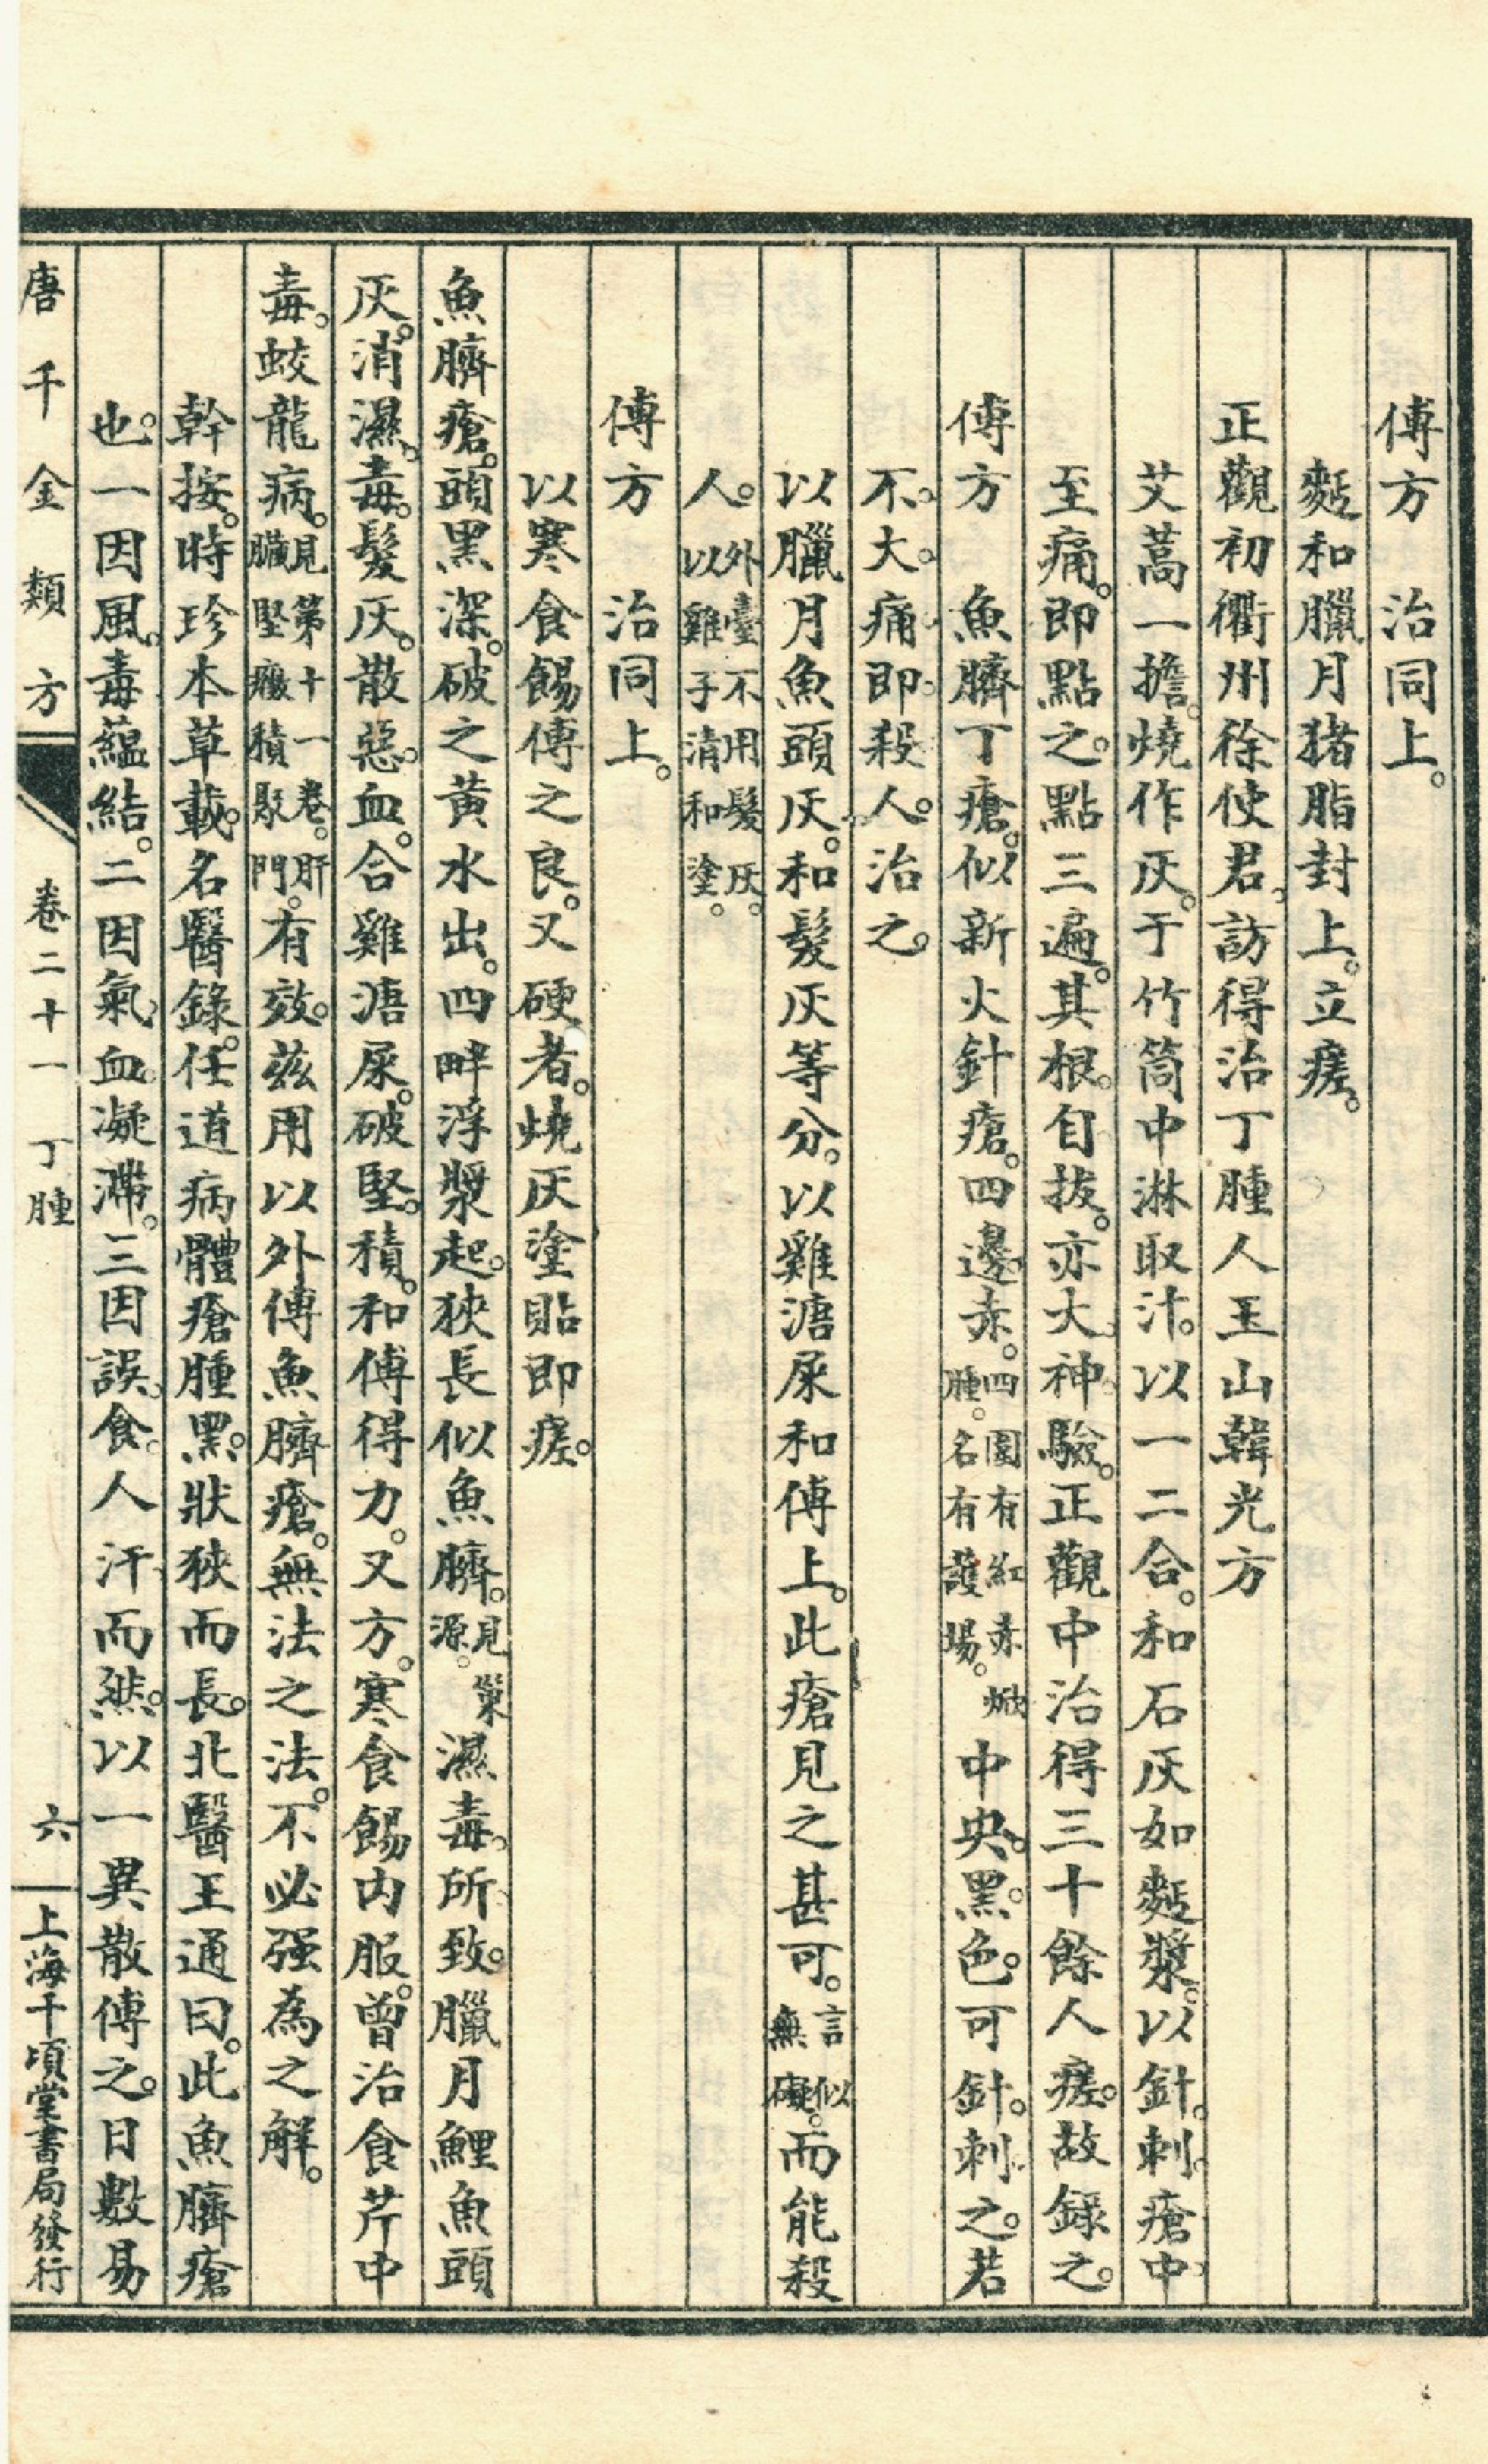 傅方　治同上。
麪和臘月猪脂封上。立瘥。
正觀初衢州徐使君。訪得治丁腫人玉山韓光方
艾蒿一擔。燒作灰。于竹筒中淋取汁。以一二合。和石灰如麪漿。以針。刺。瘡中。
至痛。即點之。點三遍。其根。自拔。亦大神驗。正觀中治得三十餘人瘥。故錄之。
傅方　魚臍丁瘡。似新火針瘡。四邊赤。四圍有紅赤焮腫。名有護場。中央。黑。色。可針。刺。之。若
不。大。痛即殺人。治之。
以臘月魚頭灰。和髮灰等分。以雞溏屎和傅上。此瘡見之甚可。言似無礙。而能殺
人。外臺不用髮灰。以雞子清和塗。
傅方　治同上。
以寒食餳傅之良。又硬者。燒灰塗貼即瘥。
魚臍瘡。頭黑深。破之黃水出。四畔浮漿起。狹長似魚臍。見巢源。濕毒。所致。臘月鯉魚頭
灰。消濕。毒。髮灰。散惡。血。合雞溏屎。破堅。積。和傅得力。又方。寒食餳內服。曾治食芹中
毒。蛟龍病。見第十一卷。肝臟堅癥積聚門。有效。茲用以外傅魚臍瘡。無法之法。不必强為之解。
幹按。時珍本草載。名醫錄。任道病體瘡腫黑。狀狹而長。北醫王通曰。此魚臍瘡
也。一因風。毒蘊結。二因氣。血。凝滯。三因誤。食。人汗而然。以一異散傅之。日數易
唐千金類方　卷二十一　丁腫　六　上海千頃堂書局發行